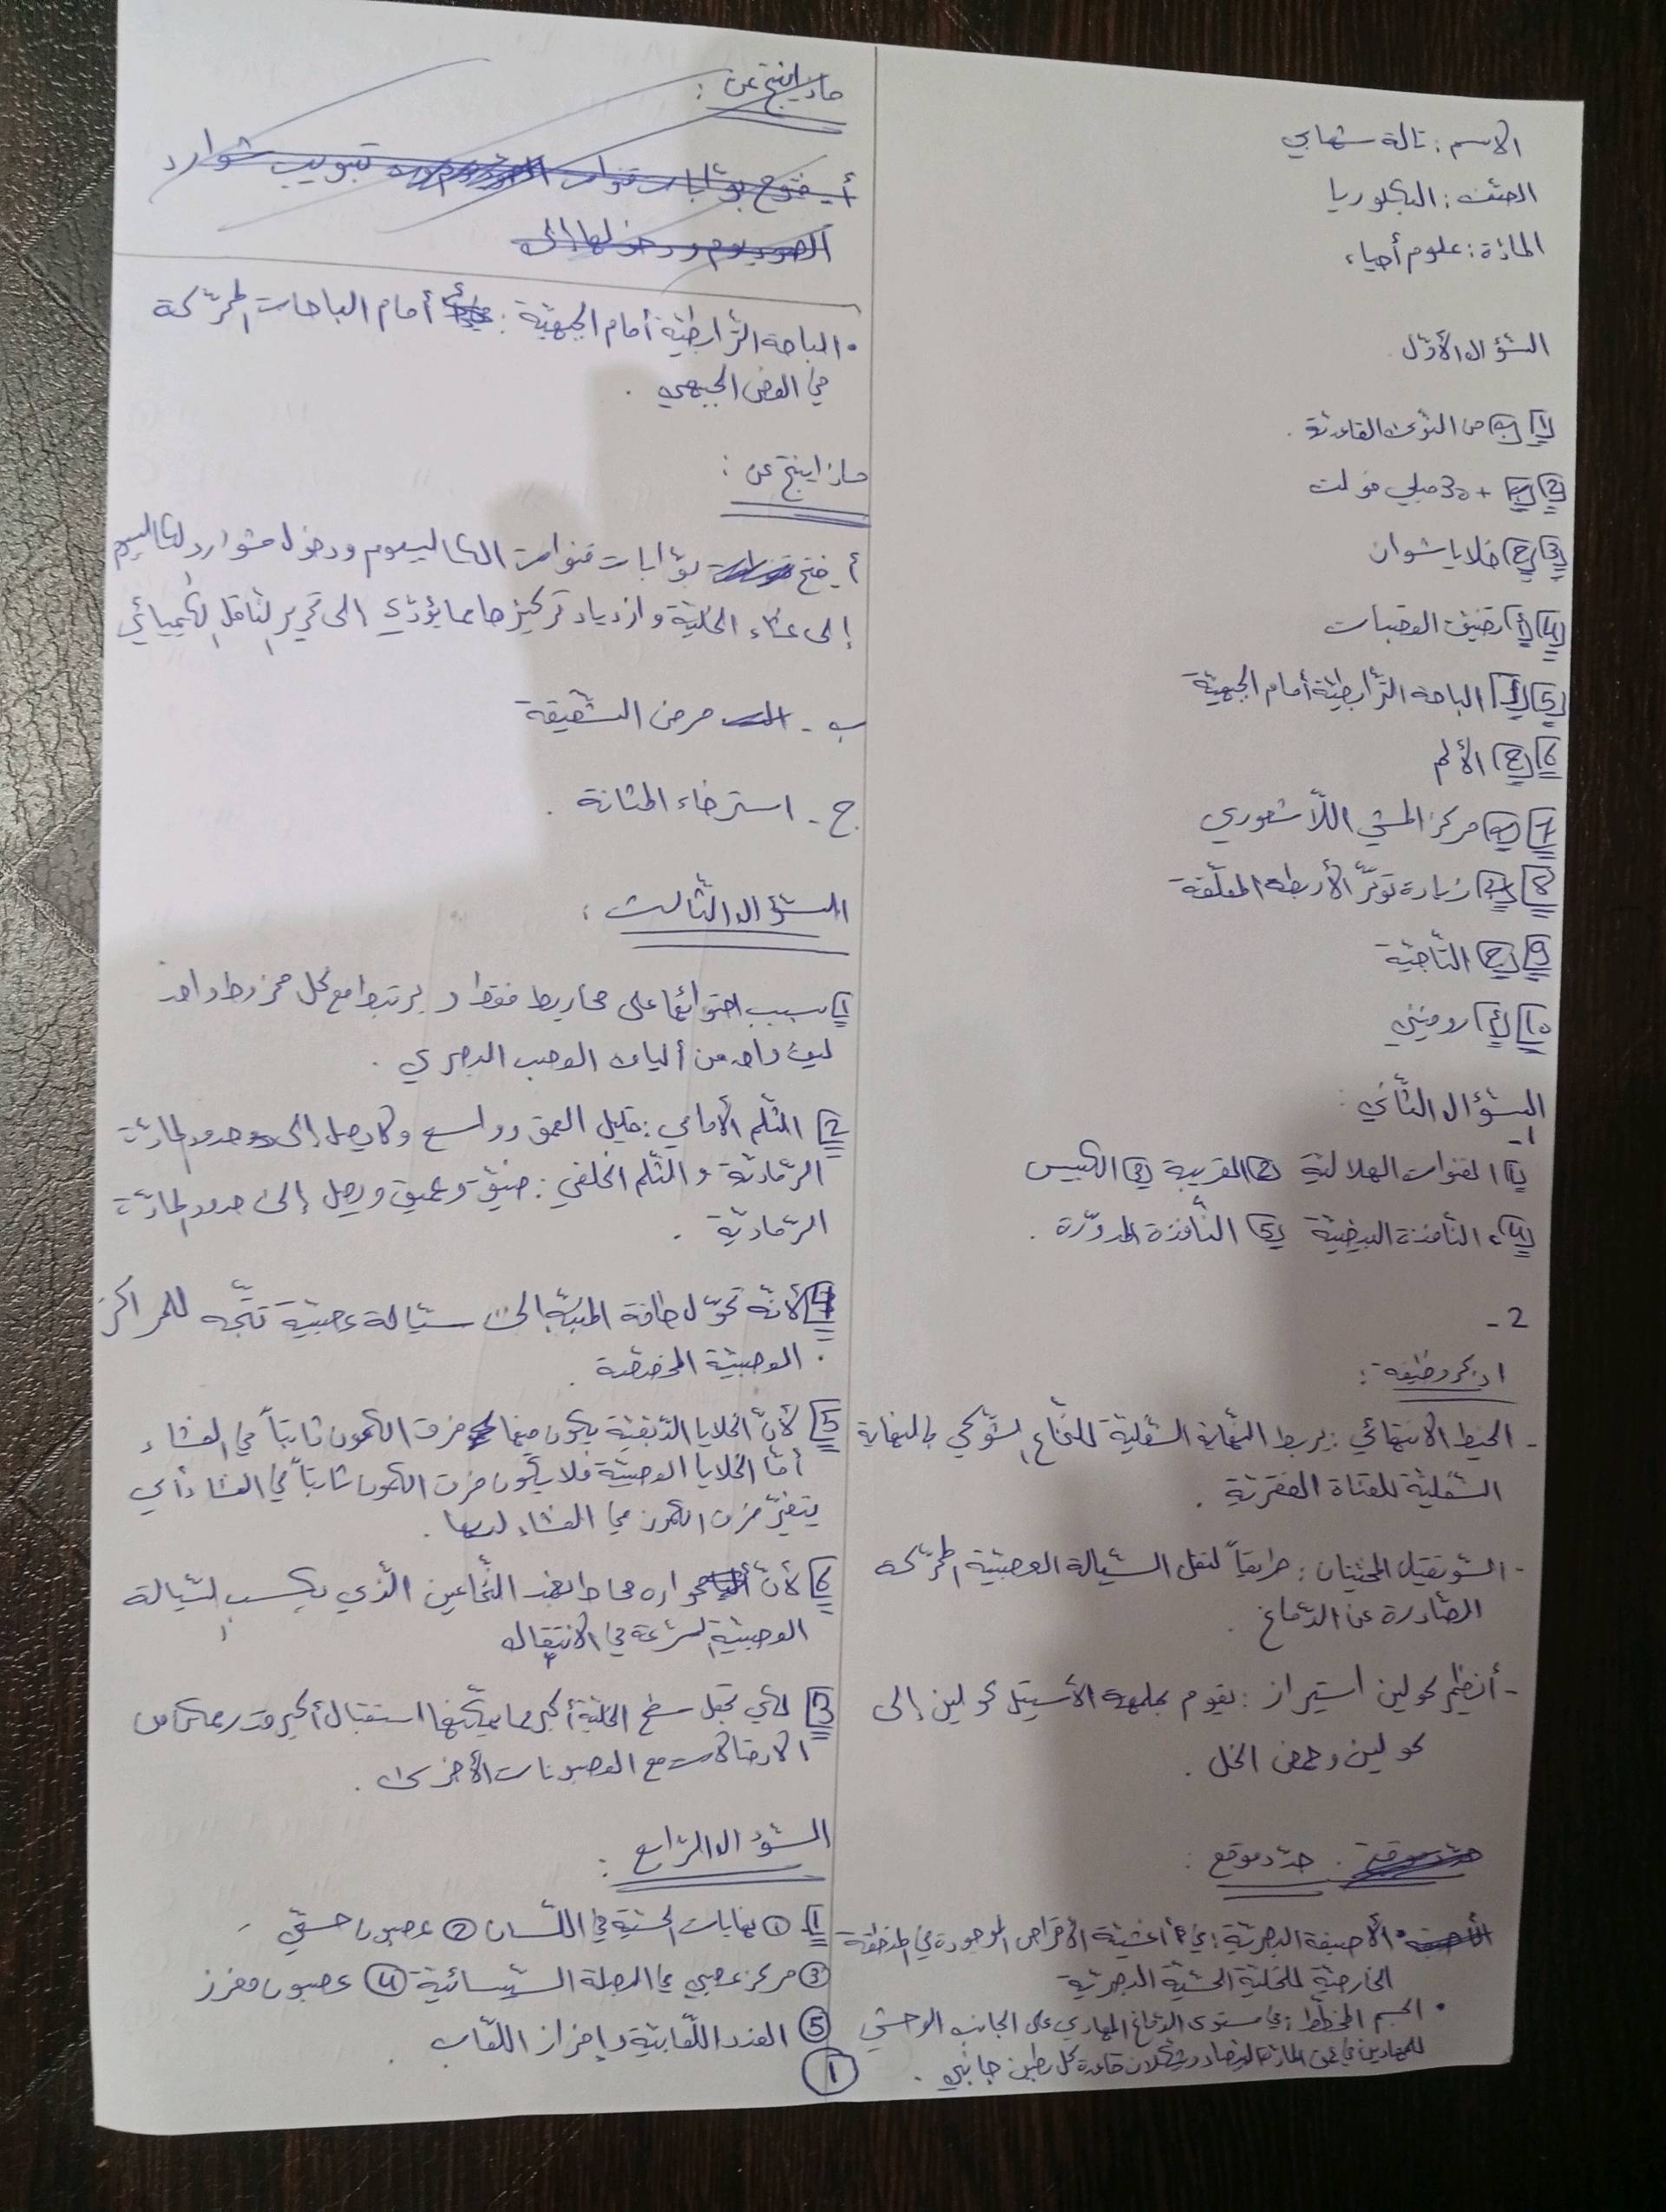 الاسم : تالة شهابي
الصف : البكلوريا
المادّة : علوم أحياء
السّؤال الأوّل
1 ب من النّوى القاعديّة .
2 ب + 30 ميلي فولت
3 ج خلايا شوان
4 أ تضيّق القصبات
5 أ الباحة التّرابطيّة أمام الجبهيّة
6 ج الألم
7 ب مركز المشي اللّاشعوري
8 زيادة توتّر الأربطة المعلّقة
9 ج التّاجيّة
10 أ رودنيني
السّؤال الثّاني :
1-
1 القنوات الهلالية 2 القريبة 3 الكييس
4 النّافذة البيضيّة 5 النّافذة المدوّرة .
2 -
اذكر وظيفة :
- الخيط الانتهائي : يربط النّهاية السّفليّة للنّخاع الشّوكي بالنهاية
السّفليّة للقناة الفقريّة .
- السّويقتان المخّيتان : طريقاً لنقل السّيالة العصبيّة المحرّكة
الصّادرة عن الدّماغ .
- أنظيم كولين استيراز : يقوم بحلمهة الأستيل كولين إلى
كولين وحمض الخل .
حدّد موقع :
الأصبغة البصريّة : في أغشية الأقراص الموجودة في المنطقة
الخارجيّة للخليّة الحسّيّة البصريّة
• الجسم المخطّط : في مستوى الدّماغ المهادي على الجانب الوحشي
للمهادين في عمق المادّة البيضاء ويشكّلان قاعدة كل بطين جانبي .
ماذا ينتج عن :
أ- فتوح بوّابات قنوات تبويب شوارد
الصوديوم ودخولها إلى
• الباحة التّرابطيّة أمام الجبهيّة : أمام الباحات المحرّكة
في الفص الجبهي .
ماذا ينتج عن :
أ- فتح بوّابات قنوات الكالسيوم ودخول شوارد الكالسيوم
إلى غشاء الخليّة وازدياد تركيزها مما يؤدّي الى تحرير النّاقل الكيميائي
ب - مرض الشّقيقة
ج - استرخاء المثانة .
السّؤال الثّالث :
1 بسبب احتوائها على مخاريط فقط و يرتبط مع كل مخروط واحد
ليف واحد من ألياف العصب البصري .
2 الثّلم الأمامي : قليل العمق وواسع ولا يصل إلى حدود المادّة
الرّماديّة و الثّلم الخلفي : ضيّق وعميق ويصل إلى حدود المادّة
الرّماديّة .
4 لأنّه تحوّل طاقة المنبّه إلى سيّالة عصبيّة تتّجه للمراكز
العصبيّة المختصّة .
5 لأنّ الخلايا الدّبقيّة يكون فيها فرق الكمون ثابتاً في الغشاء
أمّا الخلايا العصبيّة فلا يكون فرق الكمون ثابتاً في الغشاء أي
يتغيّر فرق الكمون في الغشاء لديها .
6 لأنّ محواره محاط بغمد النّخاعين الّذي يكسب السّيالة
العصبيّة السّرعة في الانتقال
3 لكي تجعل سطح الخليّة أكبر مما يمكّنها استقبال أكبر قدر ممكن من
الاتصالات مع العصبونات الأخرى .
السّؤال الرّابع :
1 ① نهايات الحسّيّة في اللّسان ② عصبون حسّي
③ مركز عصبي في البصلة السّيسائيّة ④ عصبون مفرز
⑤ الغدد اللّعابيّة وإفراز اللّعاب .
①